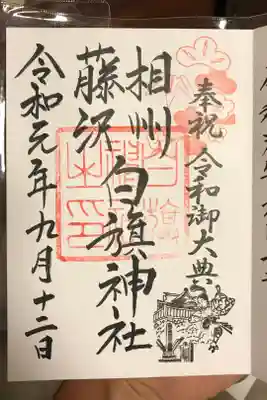 奉祝 令和御大典
相州
藤沢 白旗神社
令和元年九月十二日